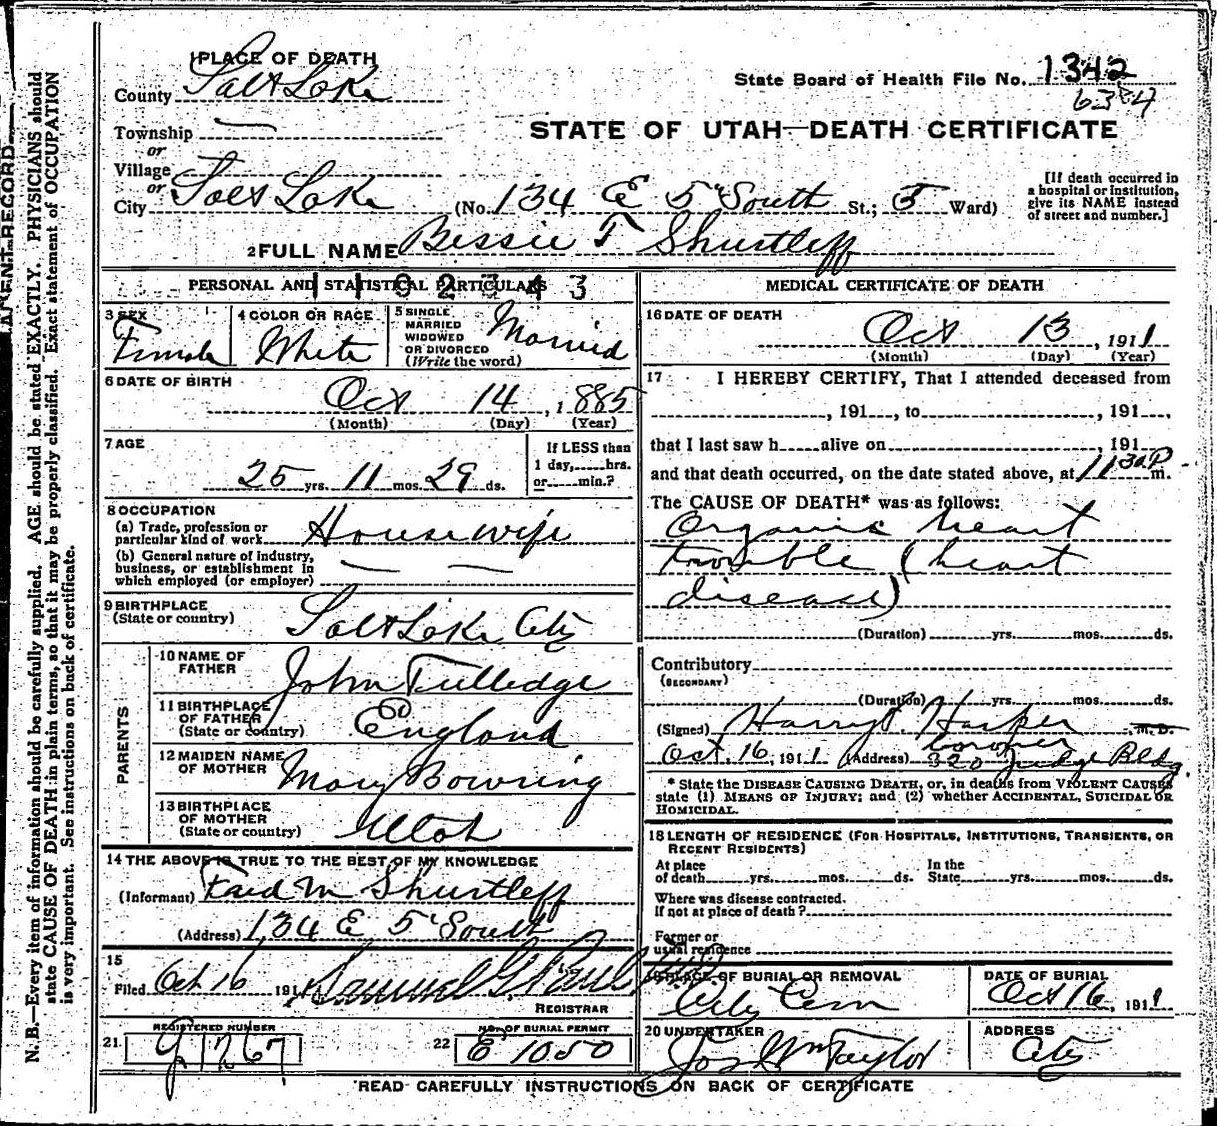 1 PLACE OF DEATH
County Salt Lake
State Board of Health File No. 1342
6384
Township —
or
Village
or
City Salt Lake (No. 134 E 5" South St.; 5 Ward)
STATE OF UTAH—DEATH CERTIFICATE
[If death occurred in
a hospital or institution,
give its NAME instead
of street and number.]
2 FULL NAME Bessie T Shurtleff
PERSONAL AND STATISTICAL PARTICULARS
1102343
3 SEX
Female
4 COLOR OR RACE
White
5 SINGLE
MARRIED
WIDOWED
OR DIVORCED
(Write the word)
Married
6 DATE OF BIRTH
Oct 14, 1885
(Month) (Day) (Year)
7 AGE
25 yrs. 11 mos. 29 ds.
If LESS than
1 day, hrs.
or min.?
8 OCCUPATION
(a) Trade, profession or
particular kind of work Housewife
(b) General nature of industry,
business, or establishment in
which employed (or employer) — —
9 BIRTHPLACE
(State or country) Salt Lake City
PARENTS
10 NAME OF
FATHER John Tulledge
11 BIRTHPLACE
OF FATHER
(State or country) England
12 MAIDEN NAME
OF MOTHER Mary Bowring
13 BIRTHPLACE
OF MOTHER
(State or country) Utah
14 THE ABOVE IS TRUE TO THE BEST OF MY KNOWLEDGE
(Informant) M Shurtleff
(Address) 134 E 5" South
15
Filed Oct 16 191 Samuel G. Paul
REGISTRAR
21 REGISTERED NUMBER
1267
22 NO. OF BURIAL PERMIT
E 1050
MEDICAL CERTIFICATE OF DEATH
16 DATE OF DEATH
Oct 13, 1911
(Month) (Day) (Year)
17 I HEREBY CERTIFY, That I attended deceased from
, 191 , to , 191 ,
that I last saw h alive on , 191
and that death occurred, on the date stated above, at 11 30 P m.
The CAUSE OF DEATH* was as follows:
Organic heart
trouble (heart
disease)
(Duration) yrs. mos. ds.
Contributory
(SECONDARY)
(Duration) yrs. mos. ds.
(Signed) Harry S. Harper M. D.
Coroner
Oct 16, 1911 (Address) 320 Judge Bldg.
* State the DISEASE CAUSING DEATH, or, in deaths from VIOLENT CAUSES
state (1) MEANS OF INJURY; and (2) whether ACCIDENTAL, SUICIDAL OR
HOMICIDAL.
18 LENGTH OF RESIDENCE (FOR HOSPITALS, INSTITUTIONS, TRANSIENTS, OR
RECENT RESIDENTS)
At place
of death yrs. mos. ds.
In the
State yrs. mos. ds.
Where was disease contracted.
If not at place of death?
Former or
usual residence
19 PLACE OF BURIAL OR REMOVAL
City Cem
DATE OF BURIAL
Oct 16, 1911
20 UNDERTAKER
Jos Wm Taylor
ADDRESS
City
READ CAREFULLY INSTRUCTIONS ON BACK OF CERTIFICATE
N. B.—Every item of information should be carefully supplied. AGE should be stated EXACTLY. PHYSICIANS should
state CAUSE OF DEATH in plain terms, so that it may be properly classified. Exact statement of OCCUPATION
is very important. See instructions on back of certificate.
RECORD